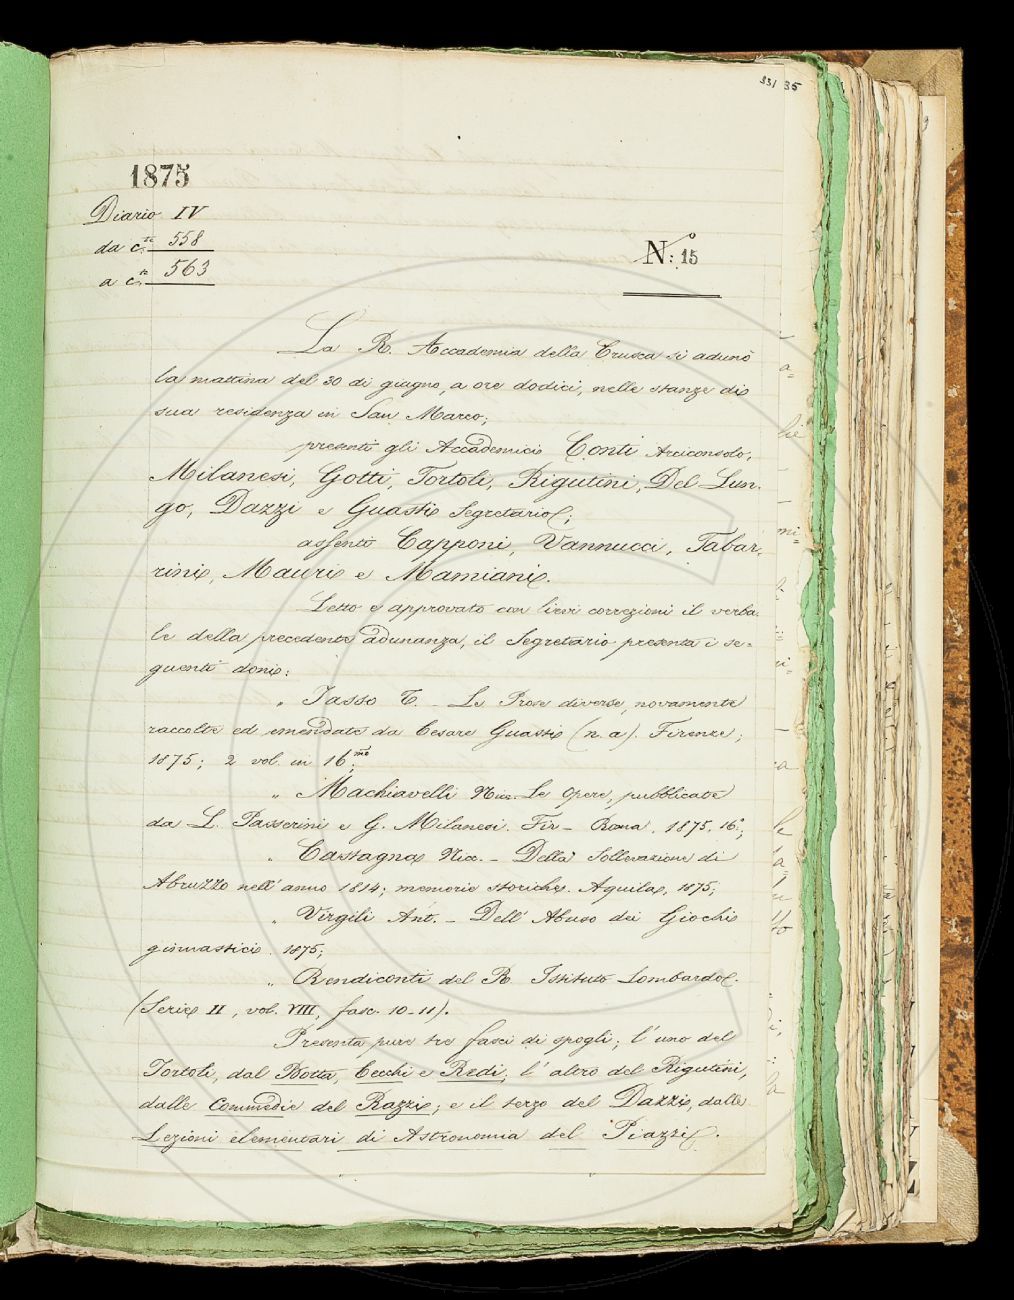 331 35
1875
Diario IV
da c.te 558
a c.te 563
N.º: 15
La R. Accademia della Crusca si adunò
la mattina del 30 di giugno, a ore dodici, nelle stanze di
sua residenza in San Marco;
presenti gli Accademici Conti Arciconsolo,
Milanesi, Gotti, Tortoli, Rigutini, Del-Lun-
go, Dazzi e Guasti Segretario;
assenti Capponi, Vannucci, Tabar-
rini, Mauri e Mamiani.
Letto e approvato con lievi correzioni il verba-
le della precedente adunanza, il Segretario presenta i se-
guenti doni:
„ Tasso T. – Le Prose diverse, novamente
raccolte ed emendate da Cesare Guasti (n. a). Firenze,
1875; 2 vol. in 16mo;
„ Machiavelli Nic. Le Opere, pubblicate
da L. Passerini e G. Milanesi. Fir – Roma. 1875. 16.º;
„ Castagna Nic. – Della Sollevazione di
Abruzzo nell'anno 1814; memorie storiche. Aquila, 1875;
„ Virgili Ant. – Dell'Abuso dei Giochi
ginnastici. 1875;
„ Rendiconti del R. Istituto Lombardo.
(Serie II, vol. VIII, fasc. 10-11).
Presenta pure tre fasci di spogli; l'uno del
Tortoli, dal Botta, Cecchi e Redi; l'altro del Rigutini,
dalle Commedie del Razzi; e il terzo del Dazzi, dalle
Lezioni elementari di Astronomia del Piazzi.